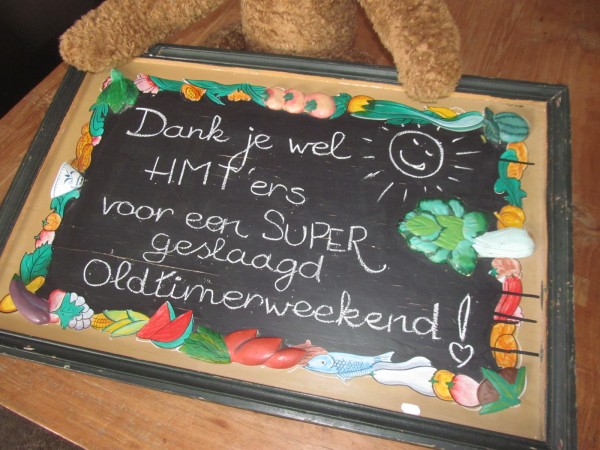 Dank je wel
HMT'ers
voor een SUPER
geslaagd
Oldtimerweekend!